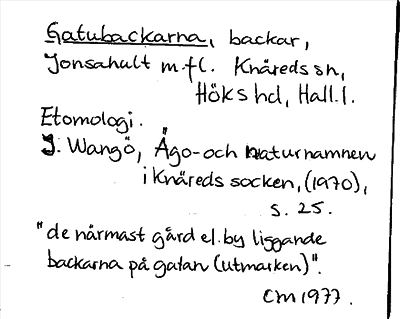 Gatubackarna, backar,
Jonsahult m.fl. Knäreds sn,
Höks hd, Hall. l.
Etomologi.
J. Wangö, Ägo- och naturnamnen
i Knäreds socken, (1970),
s. 25.
"de närmast gård el. by liggande
backarna på gatan (utmarken)".
CM 1977.